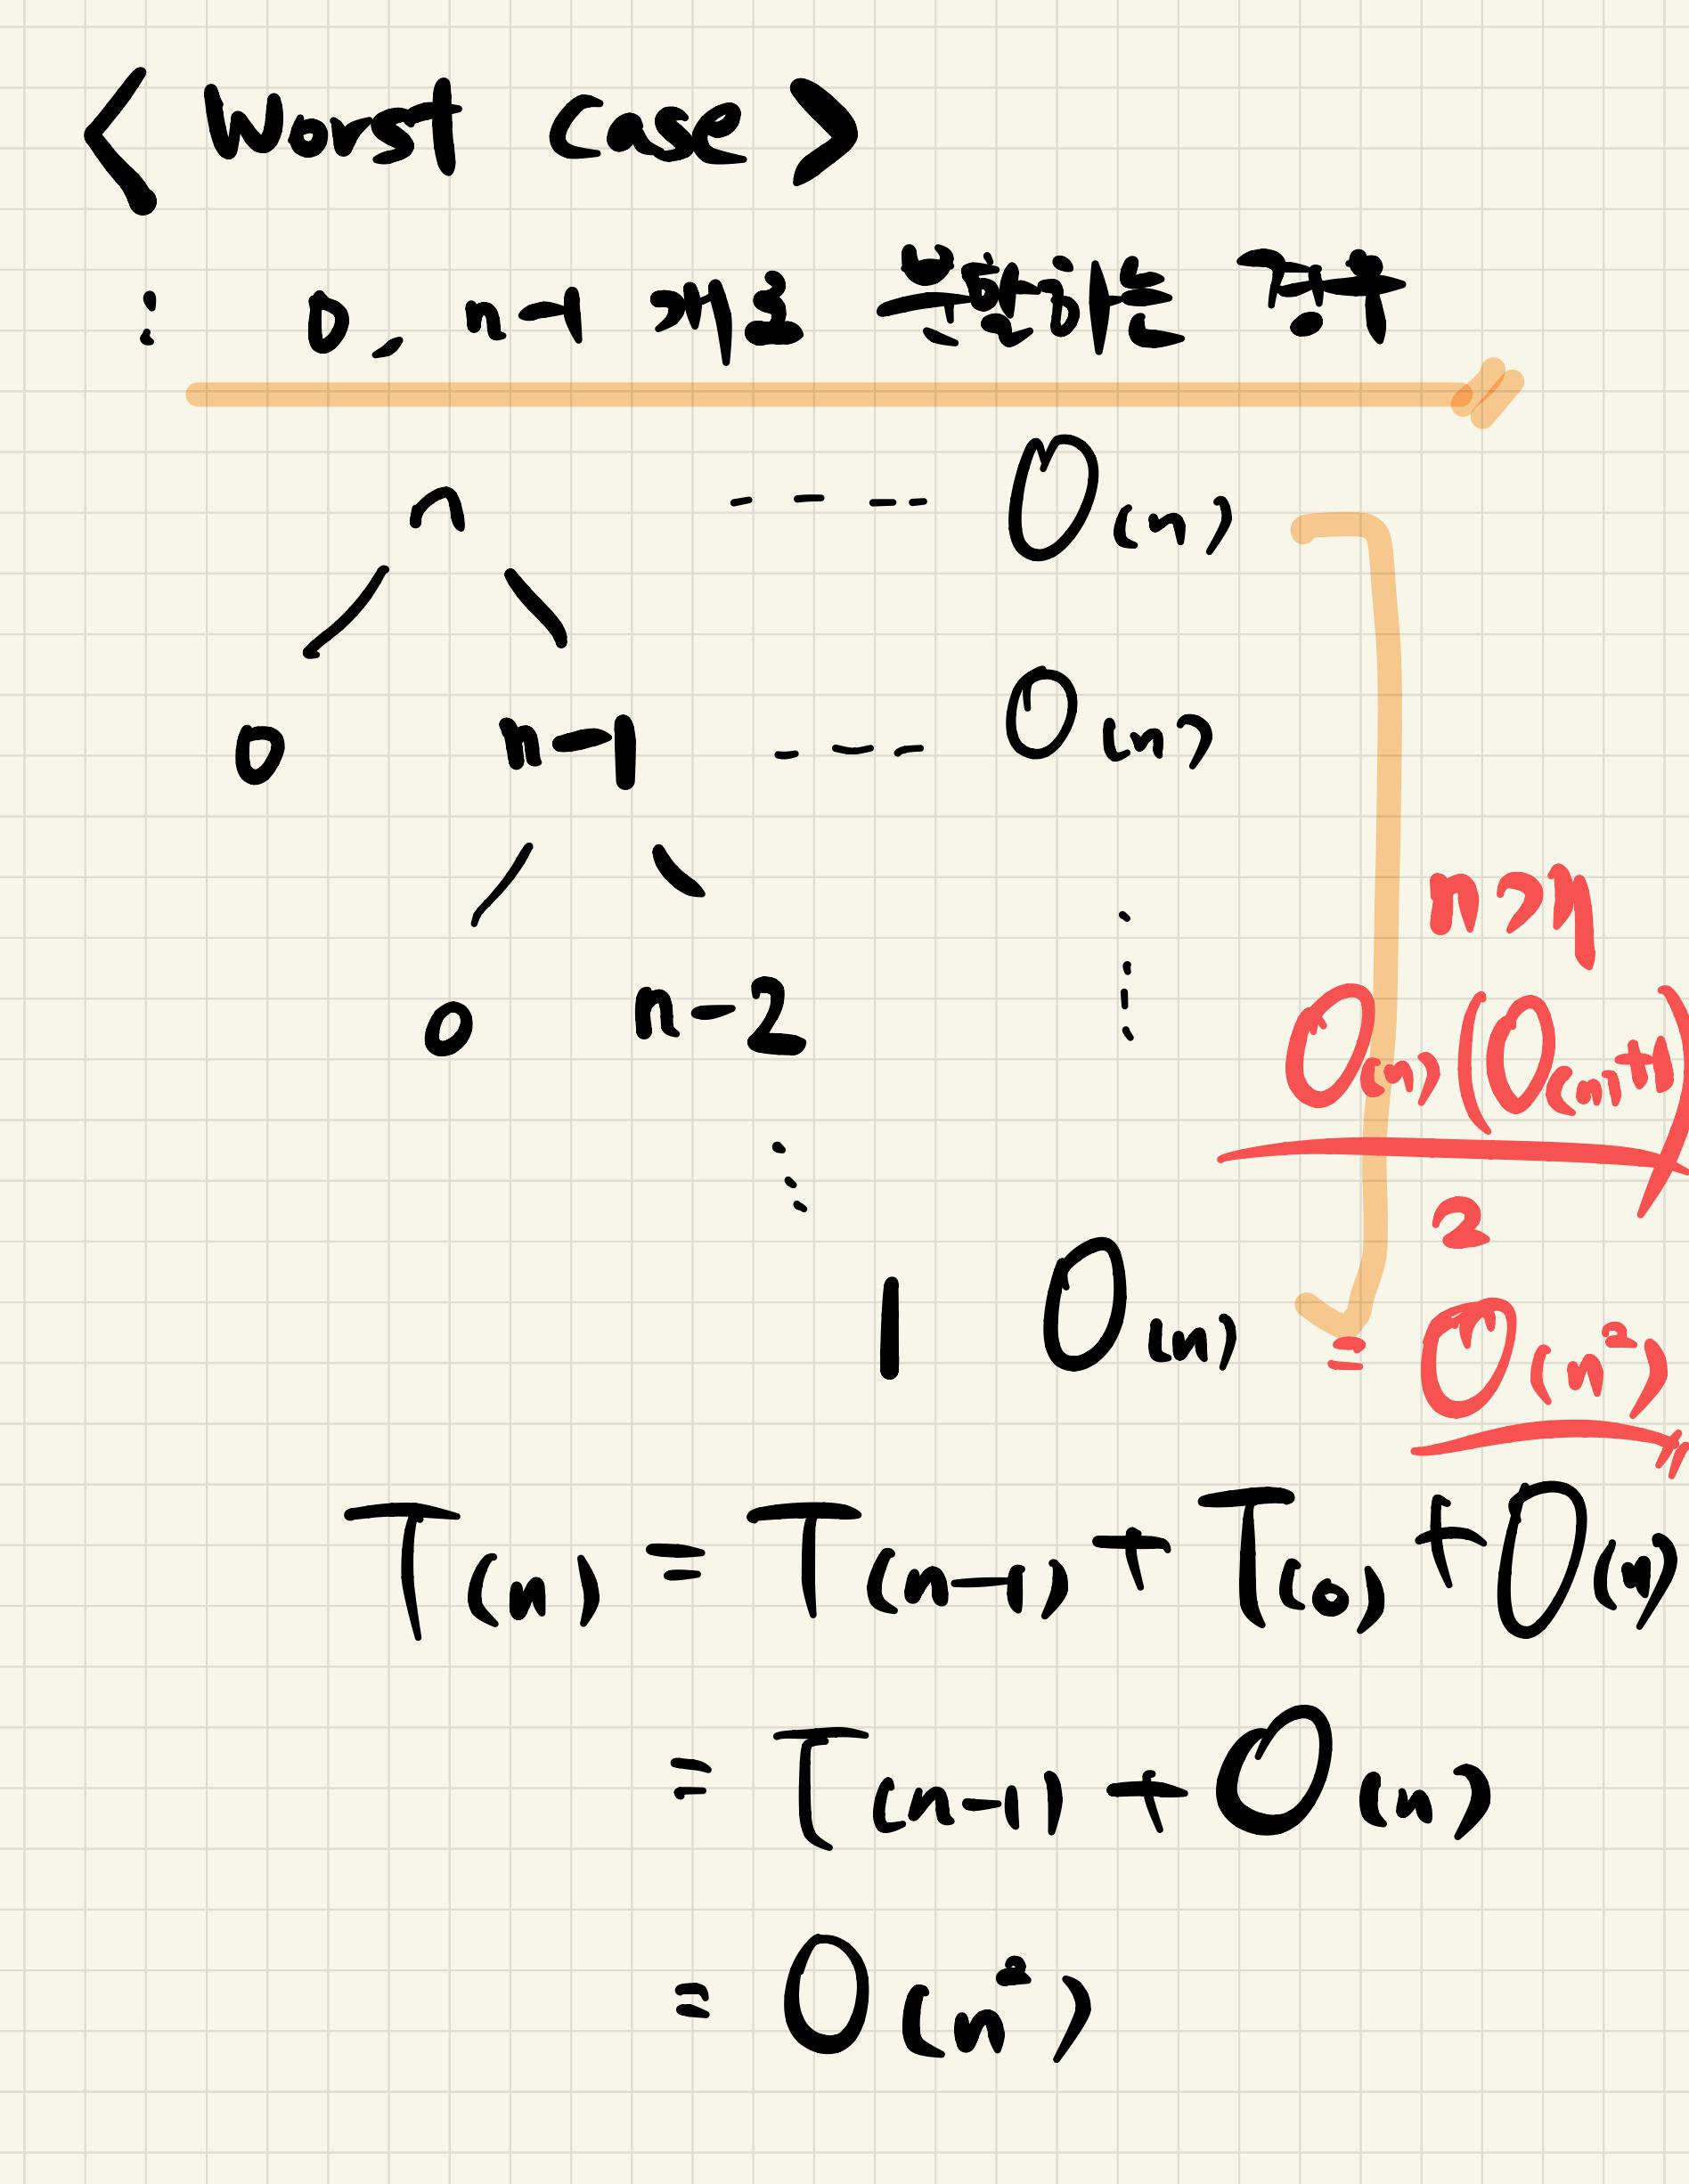 < Worst case >
: 0, n-1 개로 분할하는 경우
n ---- O(n)
0 n-1 ---- O(n)
0 n-2
n개
O(n)(O(n)+1)
2
1 O(n) = O(n²)
T(n) = T(n-1) + T(0) + O(n)
= T(n-1) + O(n)
= O(n²)